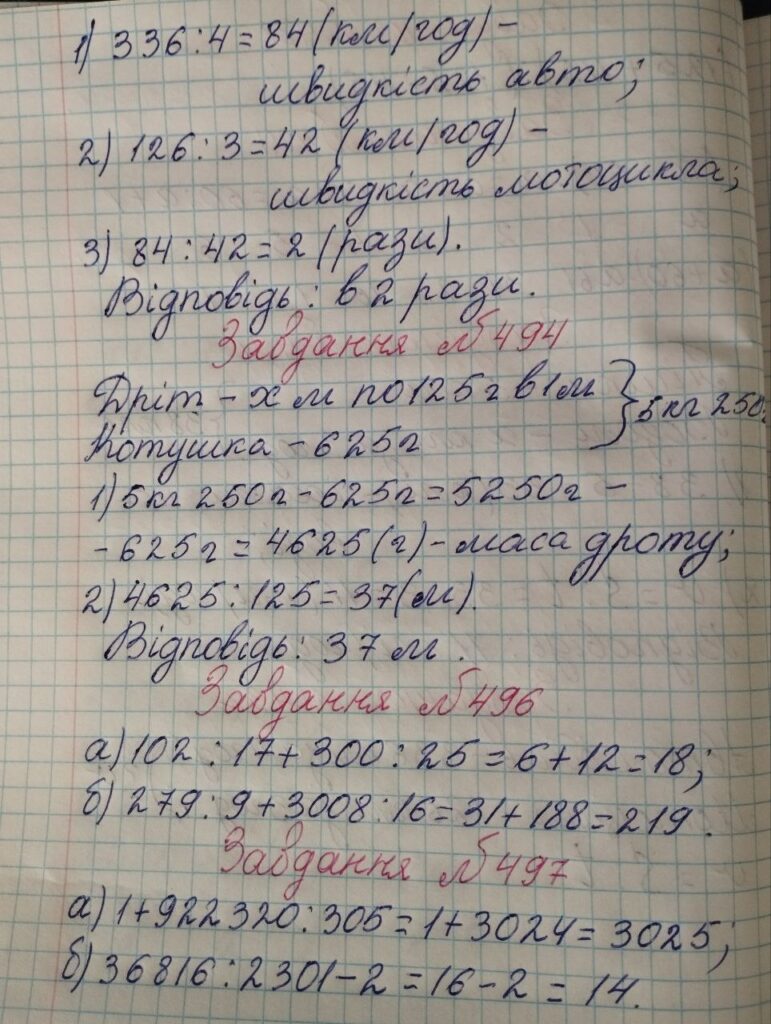 1) 336 : 4 = 84 (км/год) -
швидкість авто;
2) 126 : 3 = 42 (км/год) -
швидкість мотоцикла;
3) 84 : 42 = 2 (рази).
Відповідь: в 2 рази.
Завдання №494
Дріт - х м по 125 г в 1 м } 5 кг 250г
Котушка - 625 г
1) 5 кг 250 г - 625 г = 5250 г -
- 625 г = 4625 (г) - маса дроту;
2) 4625 : 125 = 37 (м).
Відповідь: 37 м.
Завдання №496
а) 102 : 17 + 300 : 25 = 6 + 12 = 18;
б) 279 : 9 + 3008 : 16 = 31 + 188 = 219.
Завдання №497
а) 1 + 922320 : 305 = 1 + 3024 = 3025;
б) 36816 : 2301 - 2 = 16 - 2 = 14.